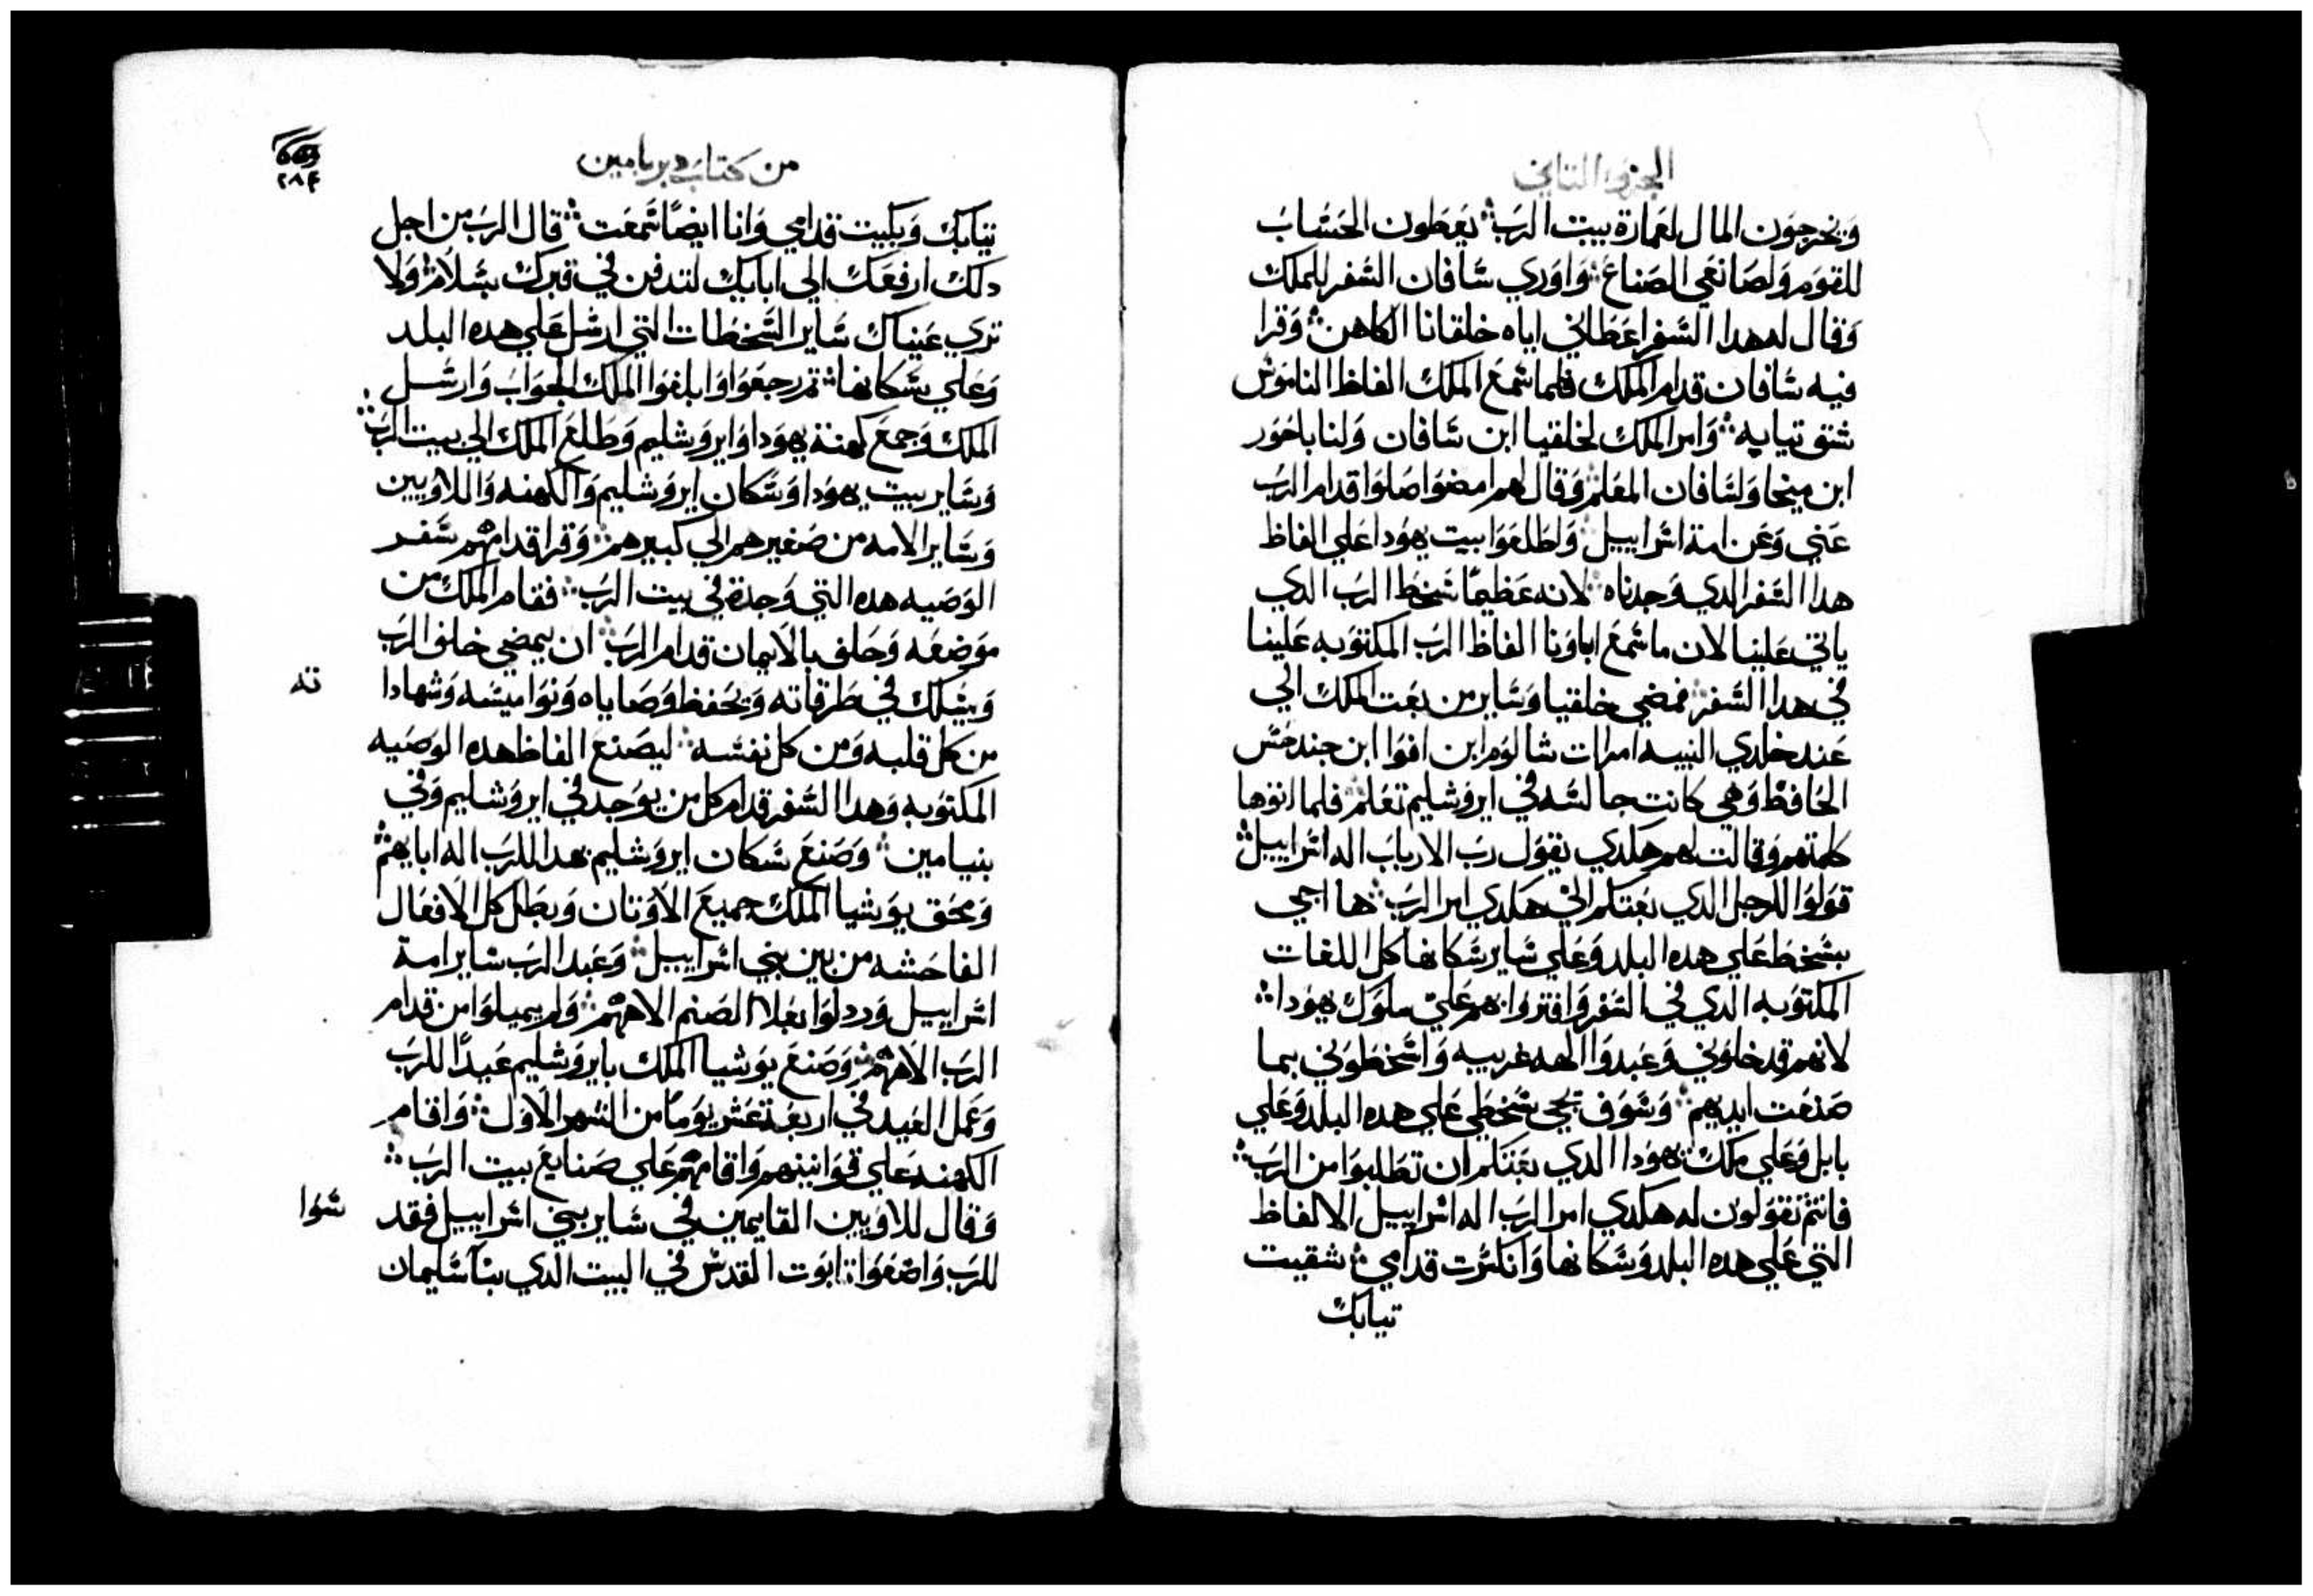 الجزو التاني
وَيخرجوَن المال لعَمارة بيت الرَبَ؞ يعَطون الحَسَابَ
للقوَم وَلصَانعَي الصَناعَ؞ وَاوَري سَافان السَفر للملك
وَقال له هدا السَفر اعَطاني اياه خلقانا الكاهن؞ وَقرا
فيه سَافان قدام الملك فلما سَمعَ الملك الفاظ الناموَسَ
شق تيابه؞ وَامر الملك لخلقيا ابن سَافان وَلناباحوَر
ابن ميخا وَلسَافان المعَلم؞ وَقال لهم امضوَا صَلوَا قدام الربَ
عَني وَعَن امة اسَراييل؞ وَاطلعَوَا بيت يهوَدا عَلي الفاظ
هدا السَفر الدي وَجدناه؞ لانه عَظيمًا سَخط الربَ الدي
ياتي عَلينا لان ما سَمعَ اباوَنا الفاظ الربَ المكتوَبه عَلينا
في هدا السَفر؞ فمضي خلقيا وَسَاير من بعَت الملك الي
عَند خلدي النبيه امرات شالوَم ابن افوَا ابن جندخسَ
الحافظ وَهي كانت جالسَه في ايروَشليم تعَلم؞ فلما اتوَها
كلمتهم وَقالت لهم هَلدي يقوَل ربَ الاربابَ اله اسَراييل؞
قوَلوَا للرجل الدي بعَتكم الي هَكدي امر الربَ؞ ها اجي
بسَخط عَلي هده البلد وَعَلي سَاير سَكانها كل اللغات
المكتوَبه الدي في السَفر وَافتروَا بهم عَلي ملوَك يهوَدا؞
لانهم قد خلوَني وَعَبدوَا الهه غريبه وَاسَخطوَني بما
صَنعَت ايديهم؞ وَسَوَف يجي سَخطي عَلي هده البلد وَعَلي
بابل وَعَلي ملك يهوَدا الدي بعَتكم ان تطلبوَا من الربَ؞
فانتم تقوَلوَن له هكدي امر الربَ اله اسَراييل الالفاظ
التي عَلي هده البلد وَسَكانها وَانكسَرت قدامي؞ شقيت
تيابك
من كتابَ دبريامين
٢٨٤
تيابك وَبكيت قدامي وَانا ايضًا سَمعَت؞ قال الربَ من اجل
دلك ارفعَك الي ابايك لتدفن في قبرك بسَلام؞ وَلا
تري عَيناك سَاير السَخطات التي ارسَل عَلي هده البلد
وَعَلي سَكانها؞ تم رجعَوَا وَابلغوَا الملك الجوَابَ وَارسَل
الملك وَجمعَ كهنة يهوَدا وَايروَشليم وَطلعَ الملك الي بيت الربَ؞
وَسَاير بيت يهوَدا وَسَكان ايروَشليم وَالكهنه وَاللاوَيين
وَسَاير الامه من صَغيرهم الي كبيرهم؞ وَقرا قدامهم سَفر
الوَصَيه هده التي وَجدة في بيت الربَ؞ فقام الملك من
موَضعَه وَحلف بالايمان قدام الربَ؞ ان يمضي خلف الربَ
وَيسَلك في طرقاته وَيحفظ وَصَاياه وَنوَاميسَه وَشهادا
ته
من كل قلبه وَمن كل نفسَه؞ ليصَنعَ الفاظ هده الوَصَيه
المكتوَبه وَهدا السَفر قدام كل من يوَجد في ايروَشليم وَفي
بنيامين؞ وَصَنعَ سَكان ايروَشليم هدا للربَ اله ابايهم؞
وَمحق يوَشيا الملك جميعَ الاوَتان وَبطل كل الافعَال
الفاحشه من بين بني اسَراييل؞ وَعَبد الربَ سَاير امة
اسَراييل وَردلوَا بعَلا الصَنم الاههم؞ وَلم يميلوَا من قدام
الربَ الاههم؞ وَصَنعَ يوَشيا الملك بايروَشليم عَيدًا للربَ
وَعَمل العَيد في اربعَة عَشر يوَمًا من الشهر الاوَل؞ وَاقام
الكهنه عَلي قوَانينهم وَاقامهم عَلي صَنايعَ بيت الربَ؞
وَقال للاوَيين القايمين في سَاير بني اسَراييل فقد
سَوَا
للربَ وَاضعَوَا تابوَت القدسَ في البيت الدي بنا سَليمان